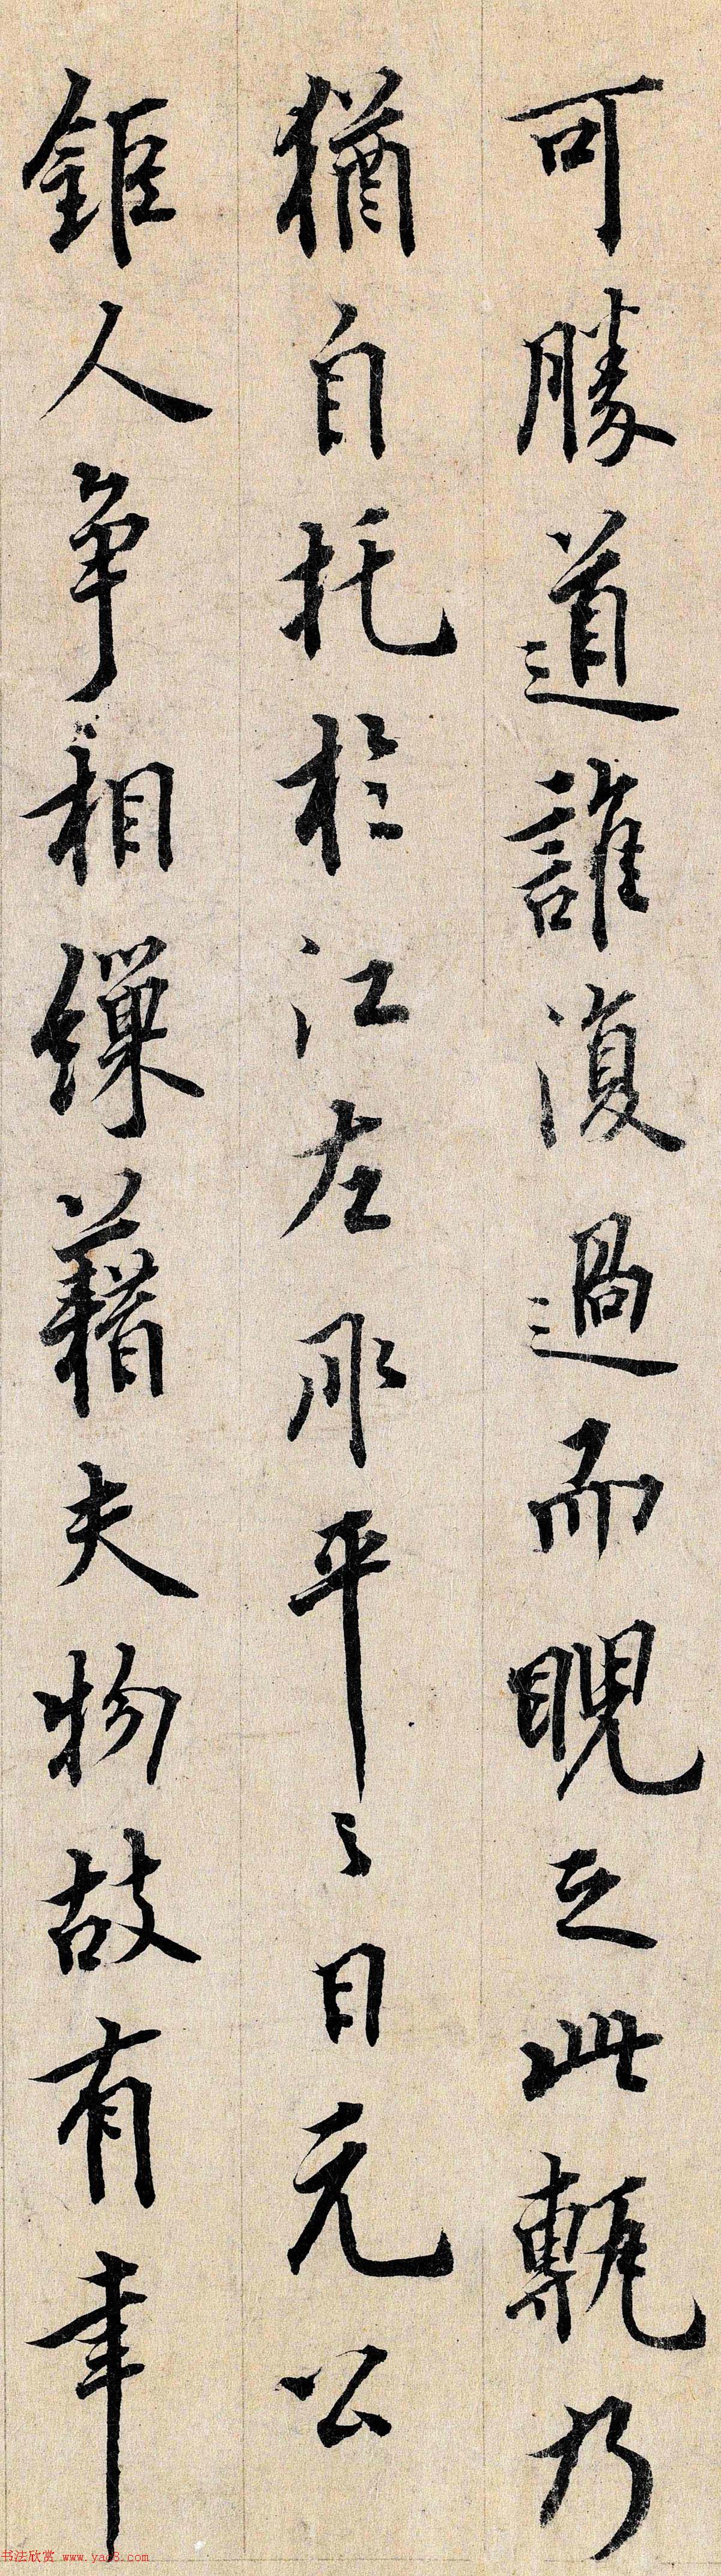 可勝道誰復過而睨之此甎乃
猶自托於江左邴平〻目元公
鉅人争相鏁藉夫物故有幸
书法欣赏 www.yac8.com